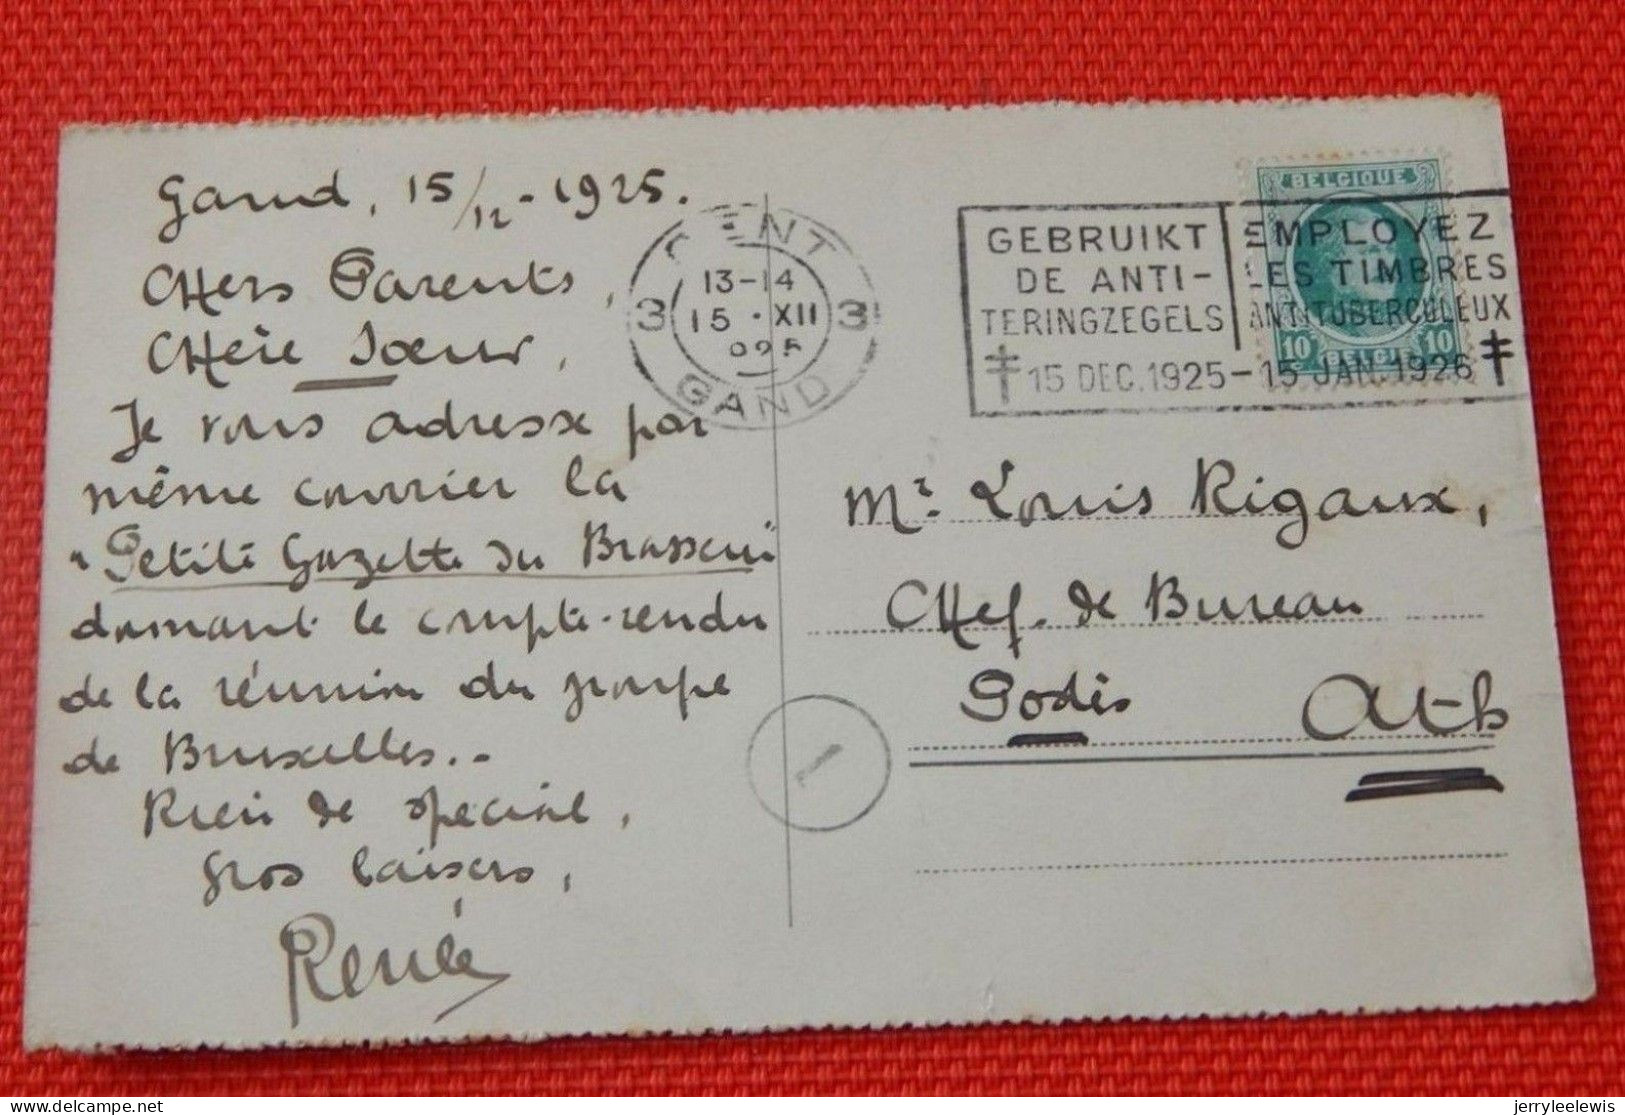 Gand, 15/12-1925.
Chers Parents,
Chère Soeur,
Je vous adresse par
même courrier la
"Petite Gazette du Brasseur"
donnant le compte-rendu
de la réunion du groupe
de Bruxelles.-
Rien de spécial,
Gros baisers,
René
GENT
13-14
3 15 · XII 3
1925
GAND
GEBRUIKT
DE ANTI-
TERINGZEGELS
EMPLOYEZ
LES TIMBRES
ANTITUBERCULEUX
15 DEC. 1925 - 15 JAN. 1926
BELGIQUE
10 BELGIË 10
Mr. Louis Rigaux,
Chef. de Bureau
Ath
delcampe.net
jerryleelewis